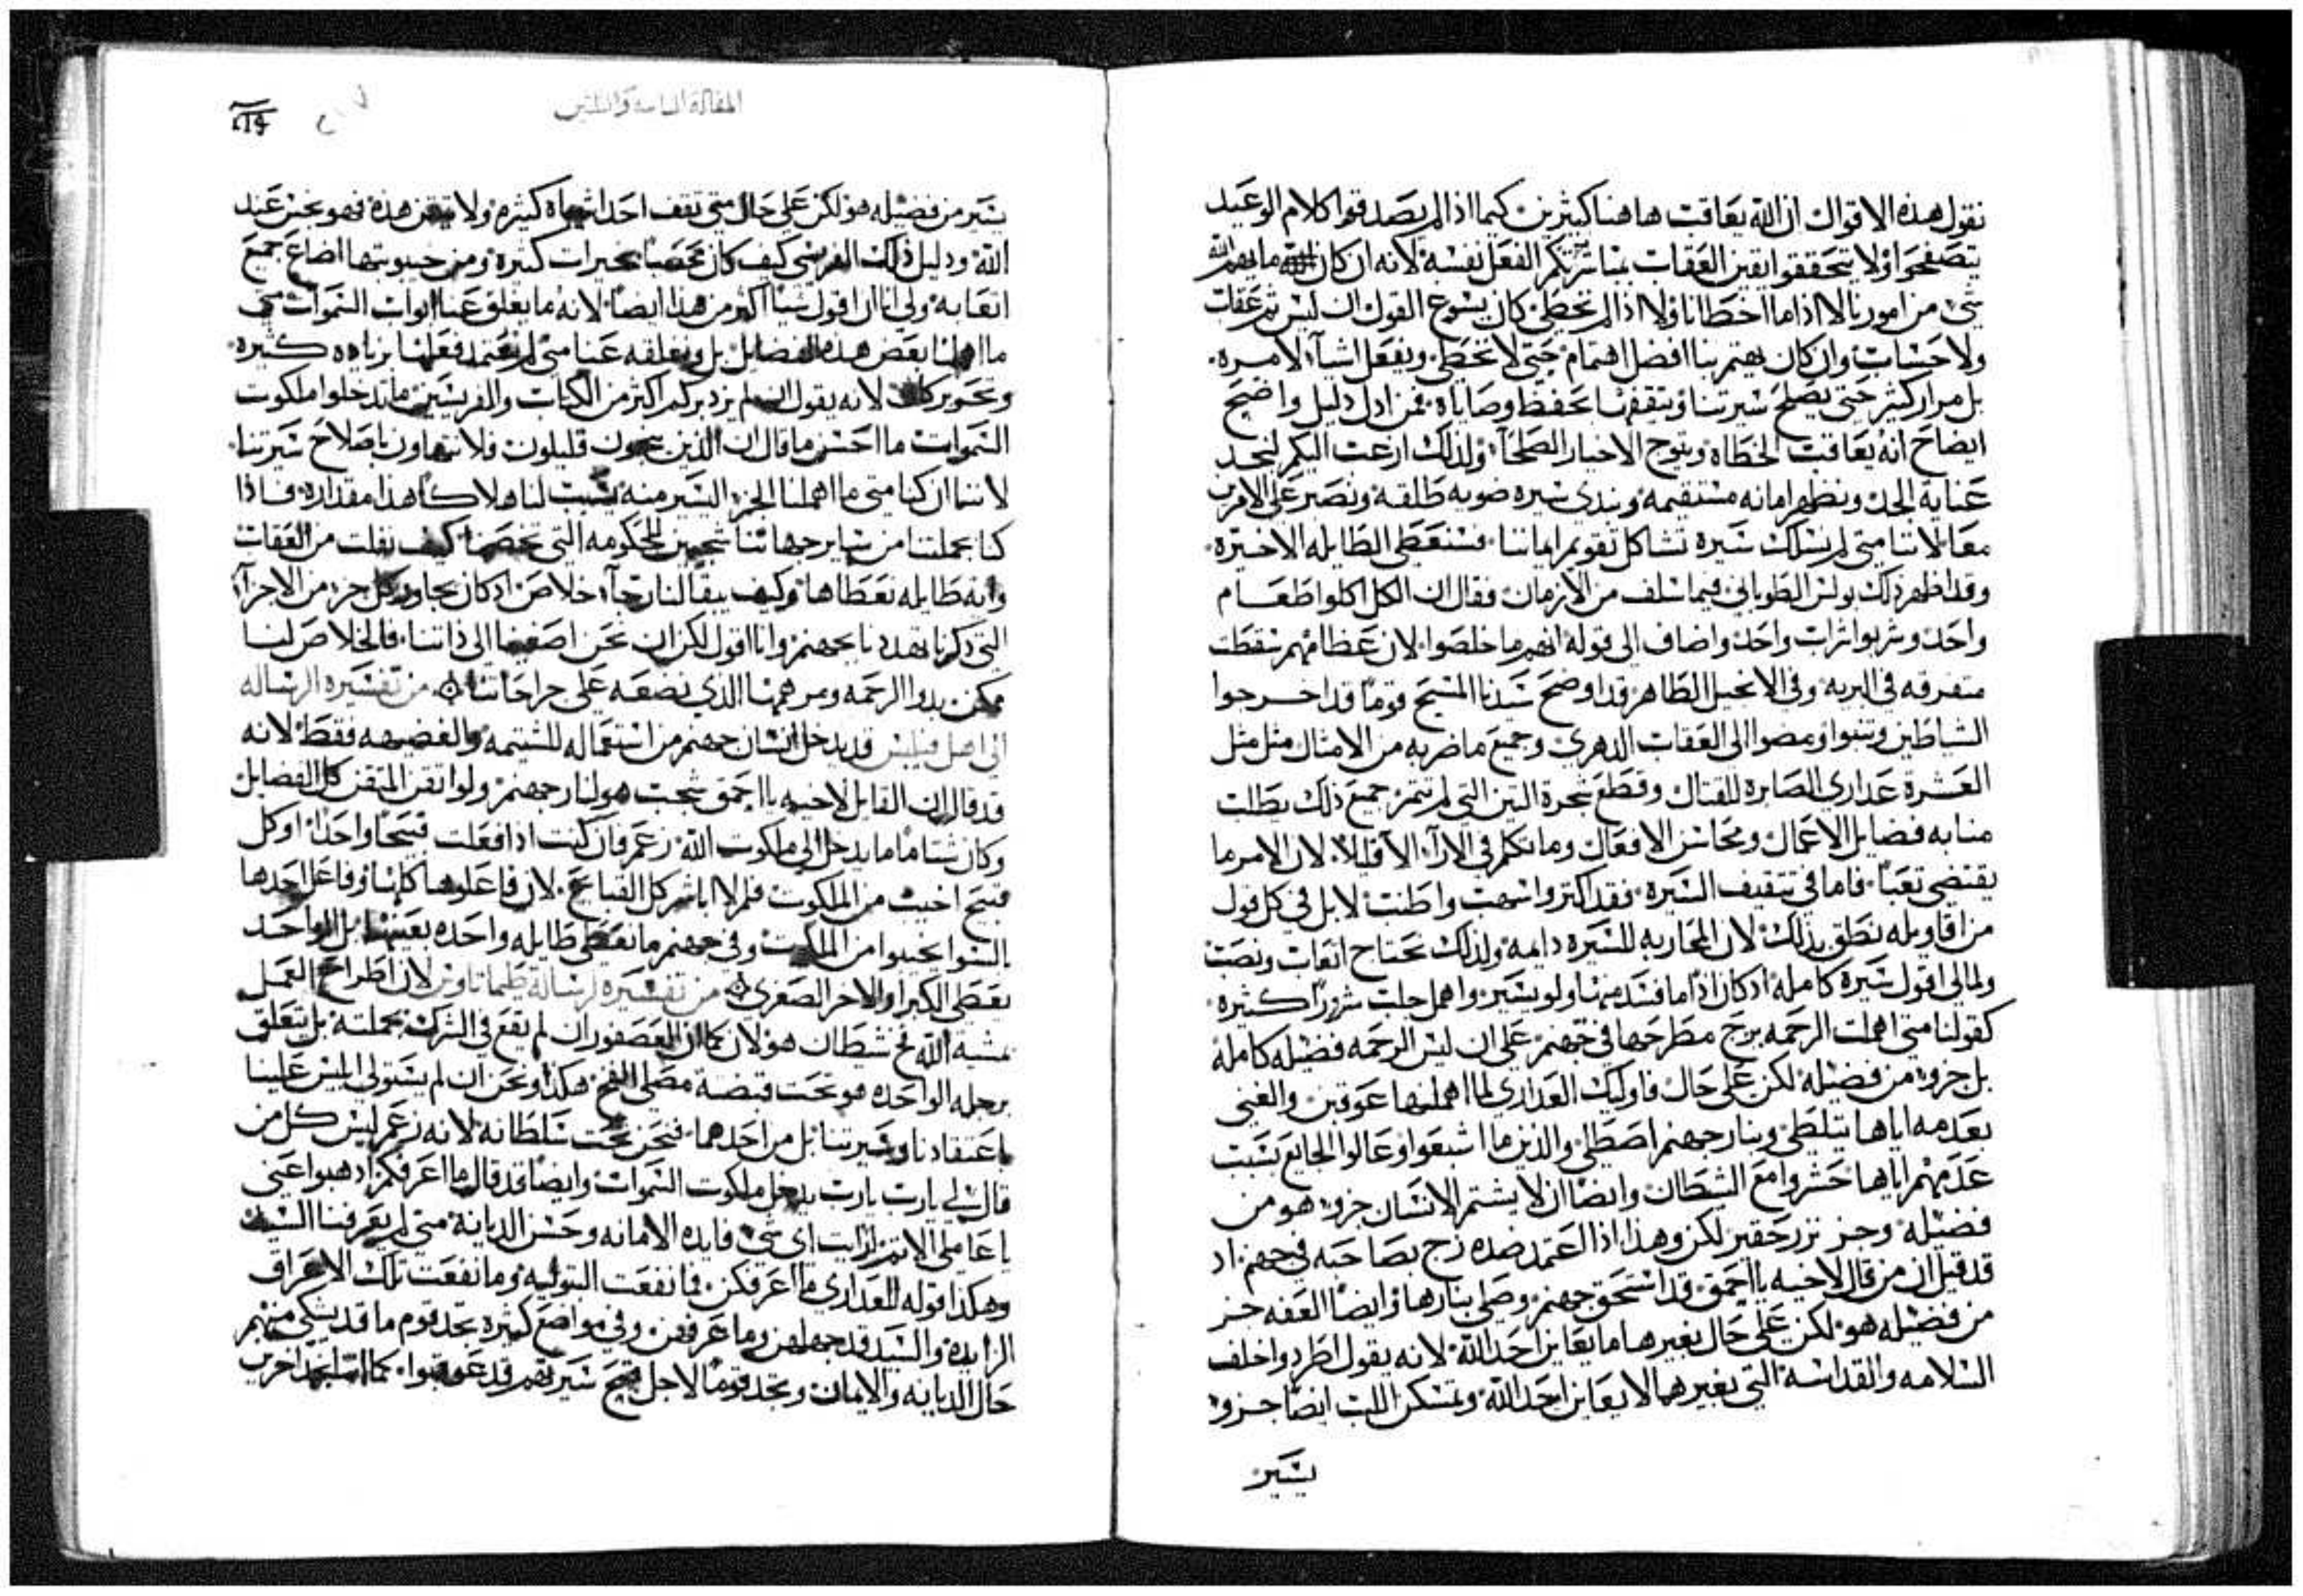 نقول هذه الاقوال ان الله يعاقب هاهنا كثيرين كيما اذا لم يصدقوا كلام الوعيد
يتصفحوا ولا يتحققوا يقين العقاب الفعل نفسه لانه ان كان الله ما يهمه
شي من امورنا لا اذا ما اخطانا ولا اذا لم نخطي كان يسوع القول ان ليس ثم عقاب
ولا حساب وان كان يهتم بنا افضل اهتمام حتى لا نخطي ونفعل اشيآ لا مره
بل مرار كثير حتى يصلح سيرتنا ويثقفها بحفظ وصاياه فمن ادل دليل واضح
ايضاح انه يعاقب الخطاه ويتوج الاخيار الصلحآ ولذلك ارعب اليكم لنجد
عناية الجد ونظهر امانه مستقيمه ونبدي سيره ضويه طلقه ونصير على الامرين
معا لاننا متى لم نسلك سيره تشاكل تقويم اماننا فسنعطى الطايله الاخيره
وقد اظهر ذلك بولس الطوباني فيما سلف من الازمان فقال ان الكل اكلوا طعام
واحد وشربوا شراب واحد واضاف الى قوله انهم ما خلصوا لان عظامهم سقطت
متفرقه في البريه وفي الانجيل الطاهر قد اوضح سيدنا المسيح قوما قد اخرجوا
الشياطين وتنبوا ومضوا الى العقاب الدهري وجميع ما ضربه من الامثال مثل مثل
العشرة عداري الصابره للقتال وقطع شجرة التين التي لم تثمر جميع ذلك يطلب
منا به فضايل الاعمال ومحاسن الافعال وما تكلم في الارآ الا قليلا لان الامر ما
يقتضي تعبا فاما في تثقيف السيره فقد اكثر واسهب واطنب لا بل في كل قول
من اقاويله نطق بذلك لان المحاربه للسيره دايمه ولذلك تحتاج اتعاب ونصب
ولما لي اقول سيره كامله اذ كان اذا ما فسد منها ولو يسير واهمل جلب شرورا كثيره
كقولنا متى اهملت الرحمه يزج مطرحها في جهنم على ان ليس الرحمه فضيله كامله
بل جزو من فضيله لكن على حال فاوليك العداري لما اهملنها عوقبن والغني
بعدمه اياها يتلظى وبنار جهنم اصطلى والذين ما اشبعوا وعالوا الجايع بسبب
عدمهم اياها حشروا مع الشيطان وايضا ان لا يشتم الانسان جزو هو من
فضيله وجز نزر حقير لكن وهذا اذا اعتمد ضده زج بصاحبه في جهنم اذ
قد قيل ان من قال لاخيه يا احمق قد استحق جهنم وصلي بنارها وايضا العفه جز
من فضيله هو لكن على حال بغيرها ما يعاين احد الله لانه يقول اطردوا خلف
السلامه والقداسة التي بغيرهما لا يعاين احد الله وتمسكن اللب ايضا جزو
يسير
المقالة والثلثين
يسير من فضيله هو لكن على حال متى ثقف احد اشياه كثيره ولا يتقن هذه فهو نجس عند
الله ودليل ذلك الفريسي كيف كان بخيرات كثيره ومن اضاع جميع
اتعابه ولي انا ان اقول شيا اكثر من هذا ايضا لانه ما يغلق عنا ابواب السموات متى
ما اهملنا بعض هذه الفضايل بل ويغلقه عنا متى لم نعتمد فعلها بزياده كثيره
لانه يقول ان لم يزد بركم اكثر من الكتاب والفريسيين ما تدخلوا ملكوت
السموات ما احسن ما قال ان الذين ينجون قليلون فلا نتهاون باصلاح سيرتنا
لاننا ان كنا متى ما اهملنا الجز اليسير منه يسبب لنا هلاكا هذا مقداره فاذا
كنا بجملتنا من ساير جهاتنا للحكومه التي تخصها كيف نفلت من العقاب
واية طايله نعطاها وكيف يبقا لنا رجآ خلاص اذ كان كل جز من الاجزآ
التي ذكرنا يهددنا بجهنم وانا اقول لكن ان نحن اصغينا الى ذاتنا فالخلاص لنا
ممكن بدوا الرحمه ومرهمها الذي نضعه على جراحاتنا من تفسيره الرساله
الى اهل فيلبس قد يدخل انسان جهنم من استعماله للشتيمه والغضبه فقط لانه
قد قال ان القايل لاخيه يا احمق لنار جهنم ولو اتقن المتقن كل الفضايل
وكان شتاما ما يدخل الى ملكوت الله زعم فان كنت اذا فعلت قبيحا واحدا او كل
قبيح اخيب من الملكوت فلم لا اباشر كل القبايح لان فاعلوها كلها وفاعل احدها
بالسوا يخيبوا من الملكوت وفي جهنم ما نعطى طايله واحده بعينها بل الواحد
يعطى الكبرا والاخر الصغرى من تفسيره لرسالة طيماثاوس لان اطراح العمل
بمشية الله فخ شيطان هو لان كما ان العصفور ان لم يقع في الشرك بجملته بل يتعلق
برجله الواحده هو تحت قبضة مصلى الفخ هكذا ونحن ان لم يستولي ابليس علينا
باعتقادنا وسيرتنا بل من احدهما فنحن تحت سلطانه لانه زعم ليس كل من
قال لي يارب يارب يدخل ملكوت السموات وايضا قد قال ما اعرفكم اذهبوا عني
يا عاملي الاثم ارايت اي شي فايده الامانه وحسن الديانة متى لم يعرفنا السيد
وهكذا قوله للعداري ما اعرفكن فما نفعت البتوليه وما نفعت تلك الاعراق
الزايده والسيد قد جهلهن وما عرفهن وفي مواضع كثيره تجد قوم ما قد يشكي منهم
حال الديانه والايمان وتجد قوما لاجل قبيح سيرتهم قد عوقبوا كما اخرين